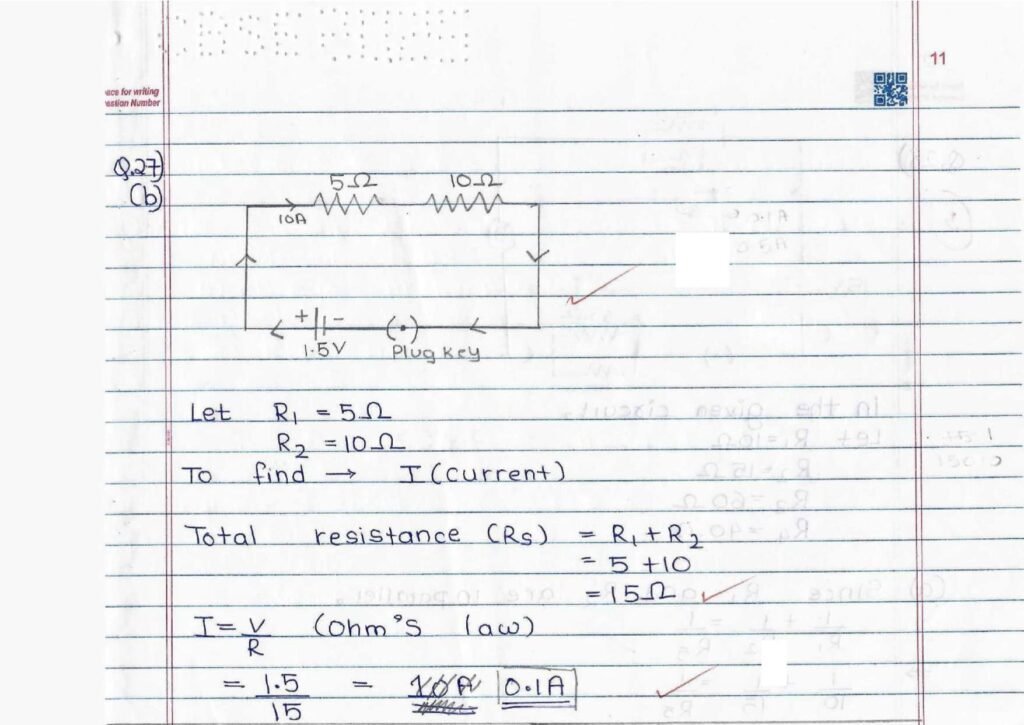 11
ace for writing
estion Number
Q.27)
(b)
5Ω 10Ω
10A
+ -
1.5V
Plug key
Let R₁ = 5Ω
R₂ = 10Ω
To find → I (current)
Total resistance (Rs) = R₁ + R₂
= 5 + 10
= 15Ω
I = V/R (Ohm's law)
= 1.5/15 = 0.1A